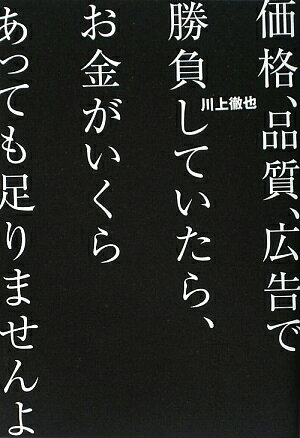 価格、品質、広告で
勝負していたら、
お金がいくら
あっても足りませんよ
川上徹也